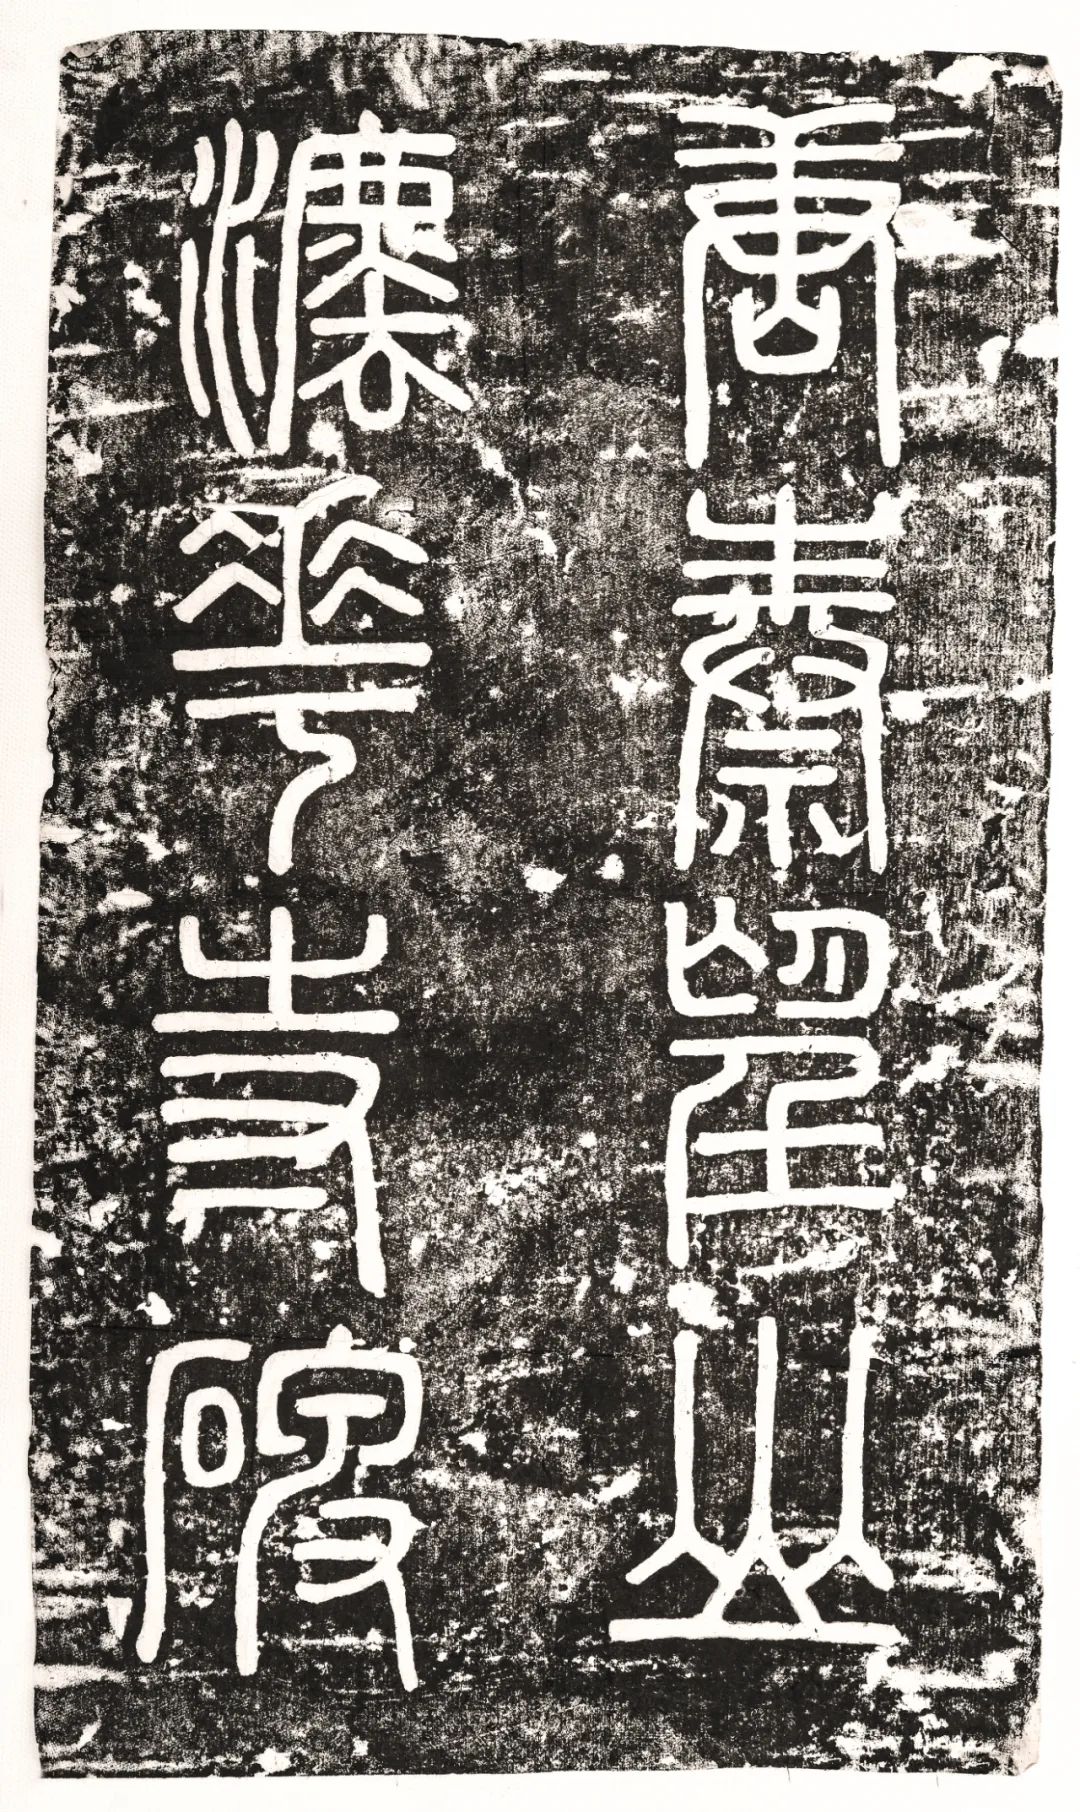 唐秦望山
灋華寺碑